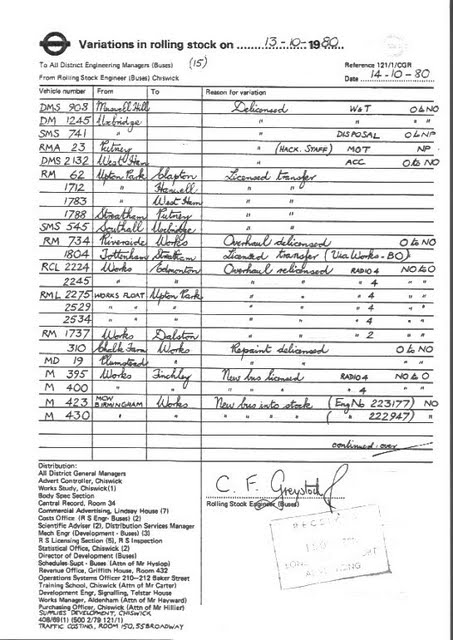 Variations in rolling stock on 13-10-1980
To All District Engineering Managers (Buses) (15) Reference 121/1/CGR
From Rolling Stock Engineer (Buses) Chiswick Date 14-10-80
Vehicle number From To Reason for variation
DMS 908 Muswell Hill Delicensed W&T O to NO
DM 1245 Uxbridge " " " "
SMS 741 " " DISPOSAL O to NP
RMA 23 Putney " (HACK. STAFF) MOT NP
DMS 2132 West Ham " ACC O to NO
RM 62 Upton Park Clapton Licensed transfer
1712 " Hanwell " "
1783 " West Ham " "
1788 Streatham Putney " "
SMS 545 Southall Uxbridge " "
RM 734 Riverside Works Overhaul delicensed O to NO
1804 Tottenham Streatham Licensed transfer (Via Works - BO)
RCL 2224 Works Edmonton Overhaul relicensed RADIO 4 NO to O
2245 " " " " " 4 " "
RML 2275 WORKS FLOAT Upton Park " " " 4 " "
2529 " " " " " 4 " "
2534 " " " " " 4 " "
RM 1737 Works Dalston " " " 2 " "
310 Chalk Farm Works Repaint delicensed O to NO
MD 19 Plumstead " " " " "
M 395 Works Finchley New bus licensed RADIO 4 NO to O
M 400 " " " " " " 4 " "
M 423 MCW BIRMINGHAM Works New bus into stock (Eng No 223177) NO
M 430 " " " " " " " ( " 222947) "
continued over
Distribution:
All District General Managers
Advert Controller, Chiswick
Works Study, Chiswick(1)
Body Spec Section
Central Record, Room 34
Commercial Advertising, Lindsey House (7)
Costs Office (R S Engr- Buses) (2)
Scientific Adviser (2), Distribution Services Manager
Mech Engr (Development - Buses) (3)
R S Licensing Section (5), R S Inspection
Statistical Office, Chiswick (2)
Director of Development (Buses)
Schedules Supt - Buses (Attn of Mr Hyslop)
Revenue Office, Griffith House, Room 432
Operations Systems Officer 210-212 Baker Street
Training School, Chiswick (Attn of Mr Carter)
Development Engr, Signalling, Telstar House
Works Manager, Aldenham (Attn of Mr Hayward)
Purchasing Officer, Chiswick (Attn of Mr Hillier)
SUPPLIES DEVELOPMENT, CHISWICK
408/69(1) (500 2/79 121/1)
TRAFFIC COSTING, ROOM 150, 55 BROADWAY
C. F. Greystock
Rolling Stock Engineer (Buses)